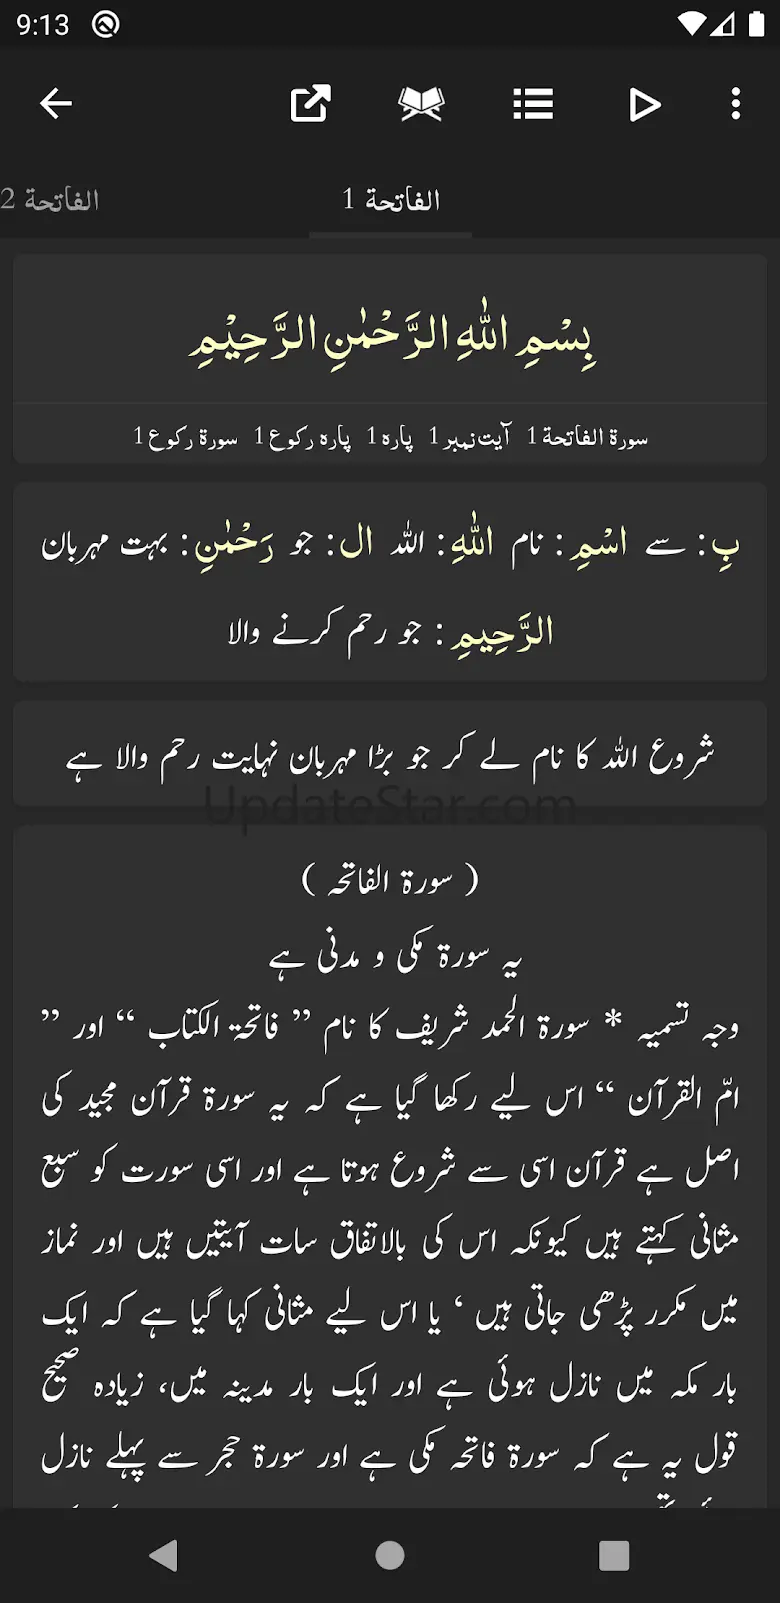 9:13
الفاتحة 1
الفاتحة 2
بِسْمِ اللّٰهِ الرَّحْمٰنِ الرَّحِيْمِ
سورۃ الفاتحة 1 آیت نمبر 1 پارہ 1 پارہ رکوع 1 سورۃ رکوع 1
بِ : سے اسْمِ : نام اللّٰهِ : اللہ ال : جو رَحْمٰنِ : بہت مہربان
الرَّحِيمِ : جو رحم کرنے والا
شروع اللہ کا نام لے کر جو بڑا مہربان نہایت رحم والا ہے
UpdateStar.com
( سورۃ الفاتحہ )
یہ سورۃ مکی و مدنی ہے
وجہ تسمیہ * سورۃ الحمد شریف کا نام ” فاتحۃ الکتاب “ اور ”
امّ القرآن “ اس لیے رکھا گیا ہے کہ یہ سورۃ قرآن مجید کی
اصل ہے قرآن اسی سے شروع ہوتا ہے اور اسی سورت کو سبع
مثانی کہتے ہیں کیونکہ اس کی بالاتفاق سات آیتیں ہیں اور نماز
میں مکرر پڑھی جاتی ہیں ‘ یا اس لیے مثانی کہا گیا ہے کہ ایک
بار مکہ میں نازل ہوئی ہے اور ایک بار مدینہ میں، زیادہ صحیح
قول یہ ہے کہ سورۃ فاتحہ مکی ہے اور سورۃ حجر سے پہلے نازل